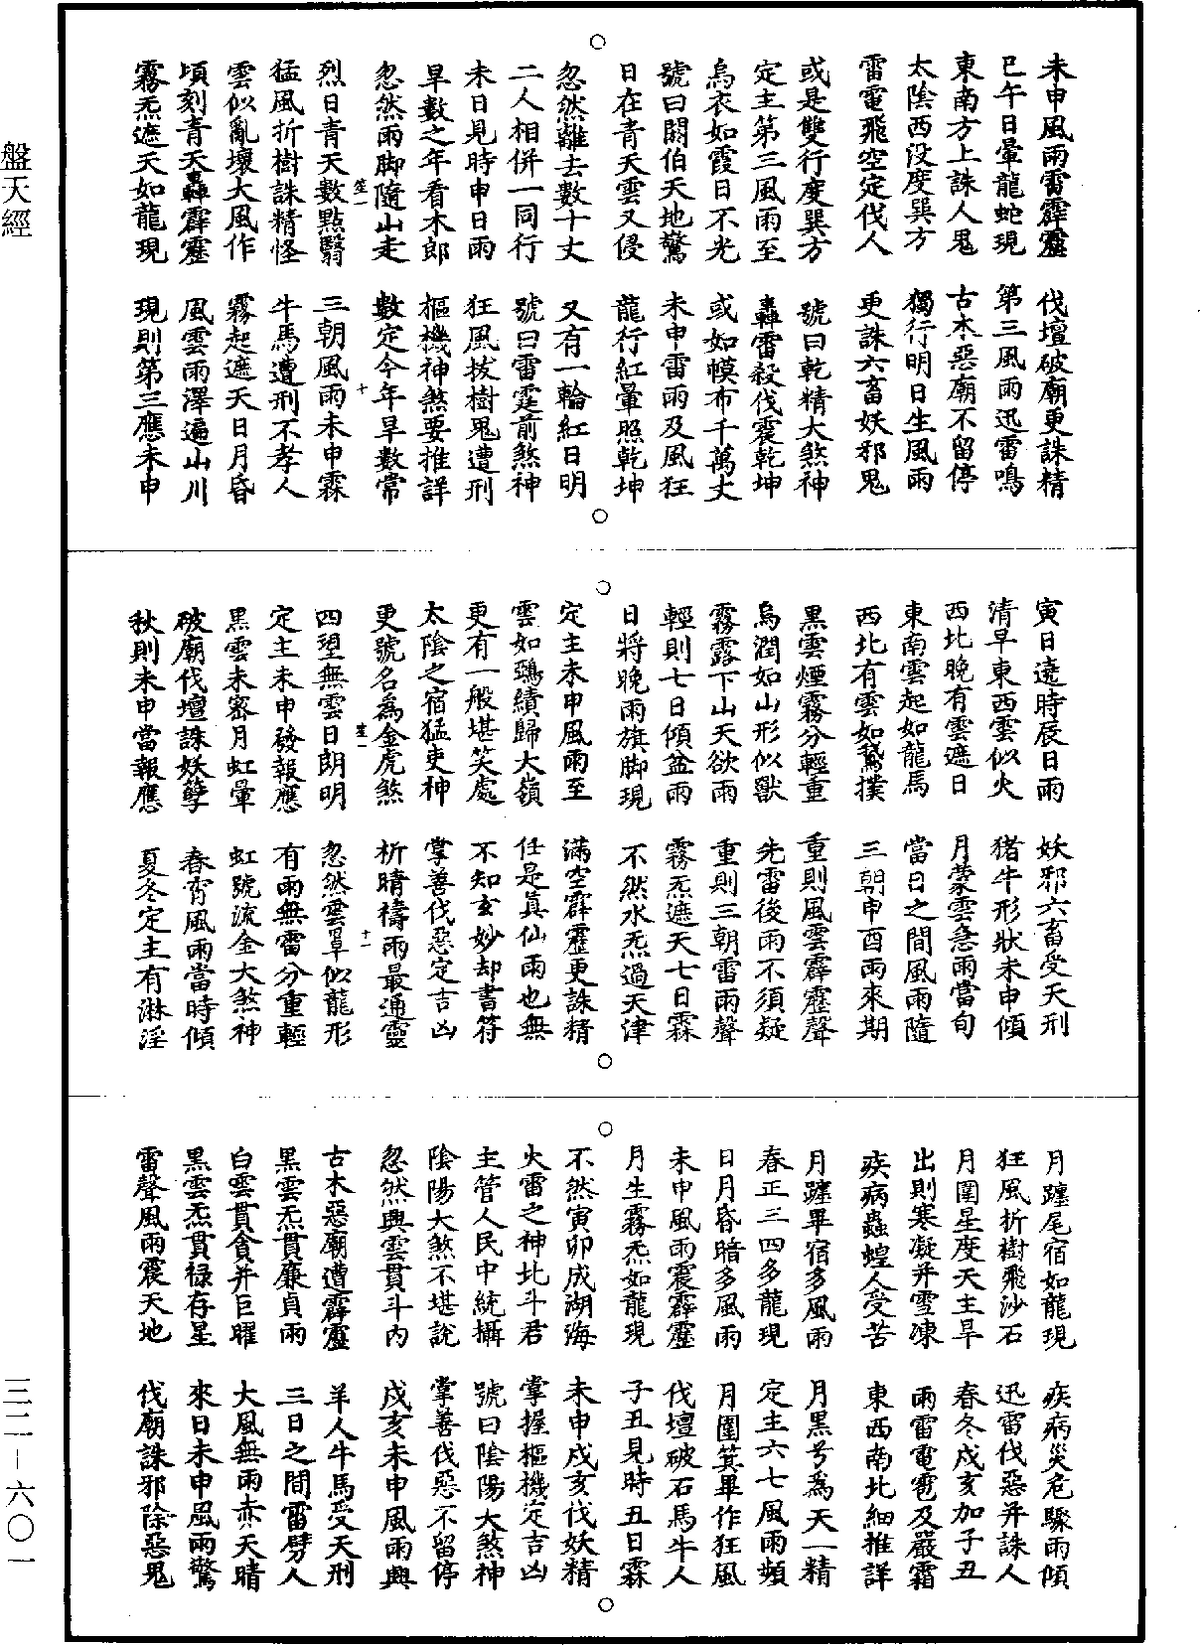 盤天經
三二－六〇一
未申風雨雷霹靂　伐壇破廟更誅精
巳午日暈龍蛇現　第三風雨迅雷鳴
東南方上誅人鬼　古木惡廟不留停
太陰西没度巽方　獨行明日生風雨
雷電飛空定伐人　更誅六畜妖邪鬼
或是雙行度巽方　號曰乾精大煞神
定主第三風雨至　轟雷殺伐震乾坤
烏衣如霞日不光　或如幞布千萬丈
號曰閼伯天地驚　未申雷雨及風狂
日在青天雲又侵　龍行紅暈照乾坤
忽然離去數十丈　又有一輪紅日明
二人相併一同行　號曰雷霆前煞神
未日見時申日雨　狂風拔樹鬼遭刑
旱數之年看木郎　樞機神煞要推詳
忽然雨脚隨山走　數定今年旱數常
笙一　十
烈日青天數點翳　三朝風雨未申霖
猛風折樹誅精怪　牛馬遭刑不孝人
雲似亂壞大風作　霧起遮天日月昏
頃刻青天轟霹靂　風雲雨澤遍山川
霧炁遮天如龍現　現則第三應未申
寅日遶時辰日雨　妖邪六畜受天刑
清早東西雲似火　猪牛形狀未申傾
西北晚有雲遮日　月蒙雲急雨當旬
東南雲起如龍馬　當日之間風雨隨
西北有雲如鵞撲　三朝申酉雨來期
黑雲煙霧分輕重　重則風雲霹靂聲
烏潤如山形似獸　先雷後雨不須疑
霧露下山天欲雨　重則三朝雷雨聲
輕則七日傾盆雨　霧炁遮天七日霖
日將晚雨旗脚現　不然水炁過天津
定主未申風雨至　滿空霹靂更誅精
雲如鵶績歸大嶺　任是真仙雨也無
更有一般堪笑處　不知玄妙却書符
太陰之宿猛吏神　掌善伐惡定吉凶
更號名爲金虎煞　析晴禱雨最通靈
笙一　十一
四望無雲日朗明　忽然雲罩似龍形
定主未申發報應　有雨無雷分重輕
黑雲未密月虹暈　虹號流金大煞神
破廟伐壇誅妖孽　春宵風雨當時傾
秋則未申當報應　夏冬定主有淋淫
月躔尾宿如龍現　疾病災危驟雨傾
狂風折樹飛沙石　迅雷伐惡并誅人
月圍星度天主旱　春冬戌亥加子丑
出則寒凝并雪凍　雨雷電雹及嚴霜
疾病蟲蝗人受苦　東西南北細推詳
月躔畢宿多風雨　月黑号爲天一精
春正三四多龍現　定主六七風雨頻
日月昏暗多風雨　月圍箕畢作狂風
未申風雨震霹靂　伐壇破石馬牛人
月生霧炁如龍現　子丑見時丑日霖
不然寅卯成湖海　未申戌亥伐妖精
火雷之神北斗君　掌握樞機定吉凶
主管人民中統攝　號曰陰陽大煞神
陰陽大煞不堪説　掌善伐惡不留停
忽然興雲貫斗内　戌亥未申風雨興
古木惡廟遭霹靂　羊人牛馬受天刑
黑雲炁貫廉貞雨　三日之間雷劈人
白雲貫貪并巨曜　大風無雨赤天晴
黑雲炁貫禄存星　來日未申風雨驚
雷聲風雨震天地　伐廟誅邪除惡鬼